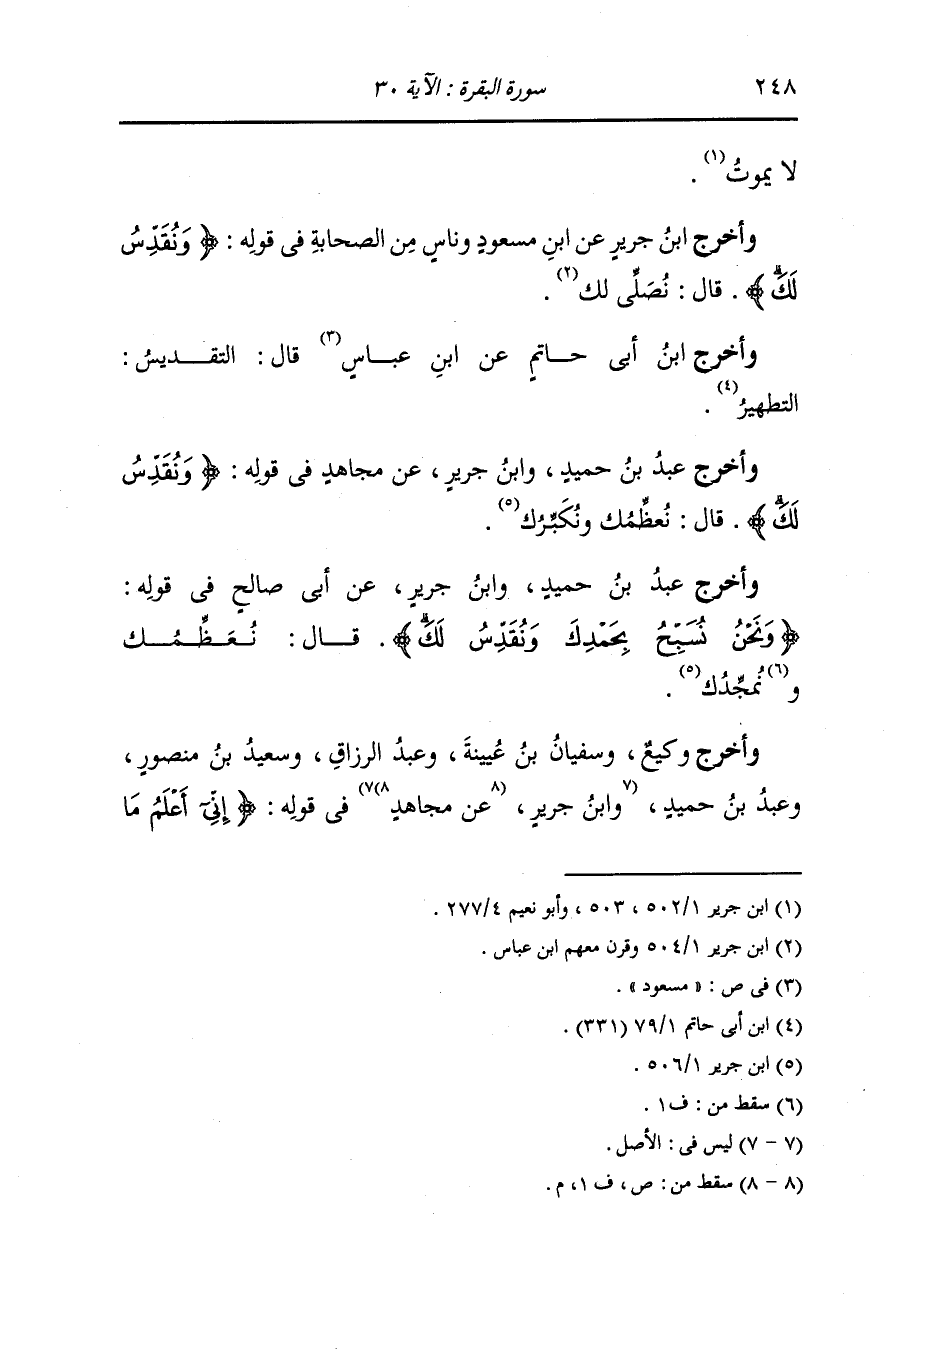 ٢٤٨ سورة البقرة : الآية ٣٠
لا يموتُ(١) .
وأخرج ابنُ جريرٍ عن ابنِ مسعودٍ وناسٍ مِن الصحابةِ فى قولِه : ﴿ وَنُقَدِّسُ
لَكَۖ ﴾ . قال : نُصَلِّى لك(٢) .
وأخرج ابنُ أبى حــاتمٍ عن ابنِ عبــاسٍ(٣) قال : التقــديسُ :
التطهيرُ(٤) .
وأخرج عبدُ بنُ حميدٍ ، وابنُ جريرٍ ، عن مجاهدٍ فى قولِه : ﴿ وَنُقَدِّسُ
لَكَۖ ﴾ . قال : نُعظِّمُك ونُكَبِّرُك(٥) .
وأخرج عبدُ بنُ حميدٍ ، وابنُ جريرٍ ، عن أبى صالحٍ فى قولِه :
﴿ وَنَحْنُ نُسَبِّحُ بِحَمْدِكَ وَنُقَدِّسُ لَكَۖ ﴾ . قــال : نُـعَـظِّـمُــك
و(٦)نُمجِّدُك(٥) .
وأخرج وكيعٌ ، وسفيانُ بنُ عُيينةَ ، وعبدُ الرزاقِ ، وسعيدُ بنُ منصورٍ ،
وعبدُ بنُ حميدٍ ، (٧وابنُ جريرٍ ، (٨عن مجاهدٍ٨)٧) فى قولِه : ﴿ إِنِّيٓ أَعْلَمُ مَا
(١) ابن جرير ٥٠٢/١ ، ٥٠٣ ، وأبو نعيم ٢٧٧/٤ .
(٢) ابن جرير ٥٠٤/١ وقرن معهم ابن عباس .
(٣) فى ص : « مسعود » .
(٤) ابن أبى حاتم ٧٩/١ (٣٣١) .
(٥) ابن جرير ٥٠٦/١ .
(٦) سقط من : ف١ .
(٧ - ٧) ليس فى : الأصل .
(٨ - ٨) سقط من : ص ، ف ١ ، م .